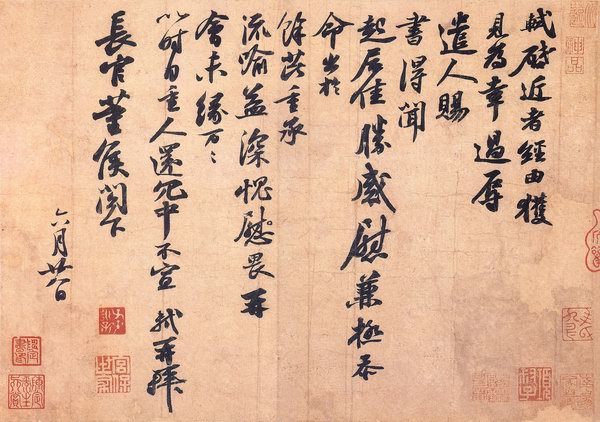 軾啓近者經由獲
見為幸過辱
遣人賜
書得聞
起居佳勝感慰兼極忝
命出於
餘芘重承
流喻益深愧慰畏再
會未緣万万
以時自重人還冗中不宣 軾再拜
長官董侯閣下
六月廿八日